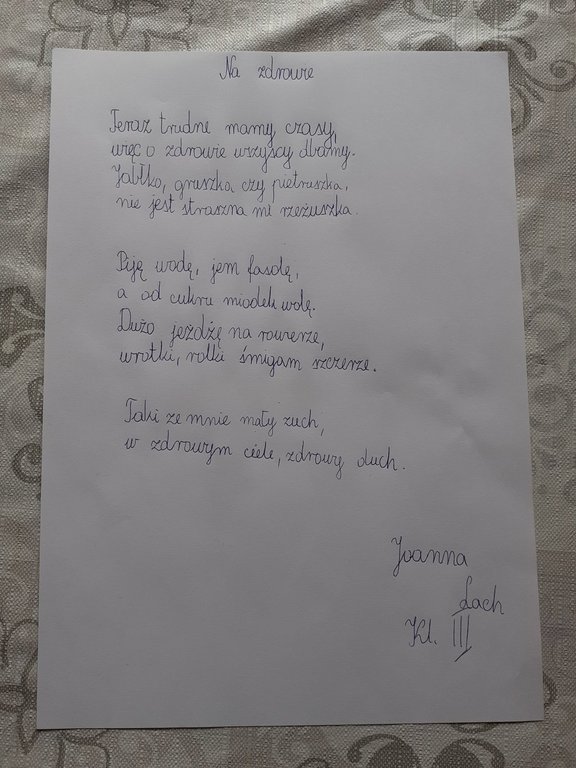 Na zdrowie
Teraz trudne mamy czasy,
więc o zdrowie wszyscy dbamy.
Jabłko, gruszka czy pietruszka,
nie jest straszna mi rzeżuszka.
Piję wodę, jem fasolę,
a od cukru miodek wolę.
Dużo jeżdżę na rowerze,
wrotki, rolki śmigam szczerze.
Taki ze mnie mały zuch,
w zdrowym ciele, zdrowy duch.
Joanna
Lach
Kl. III